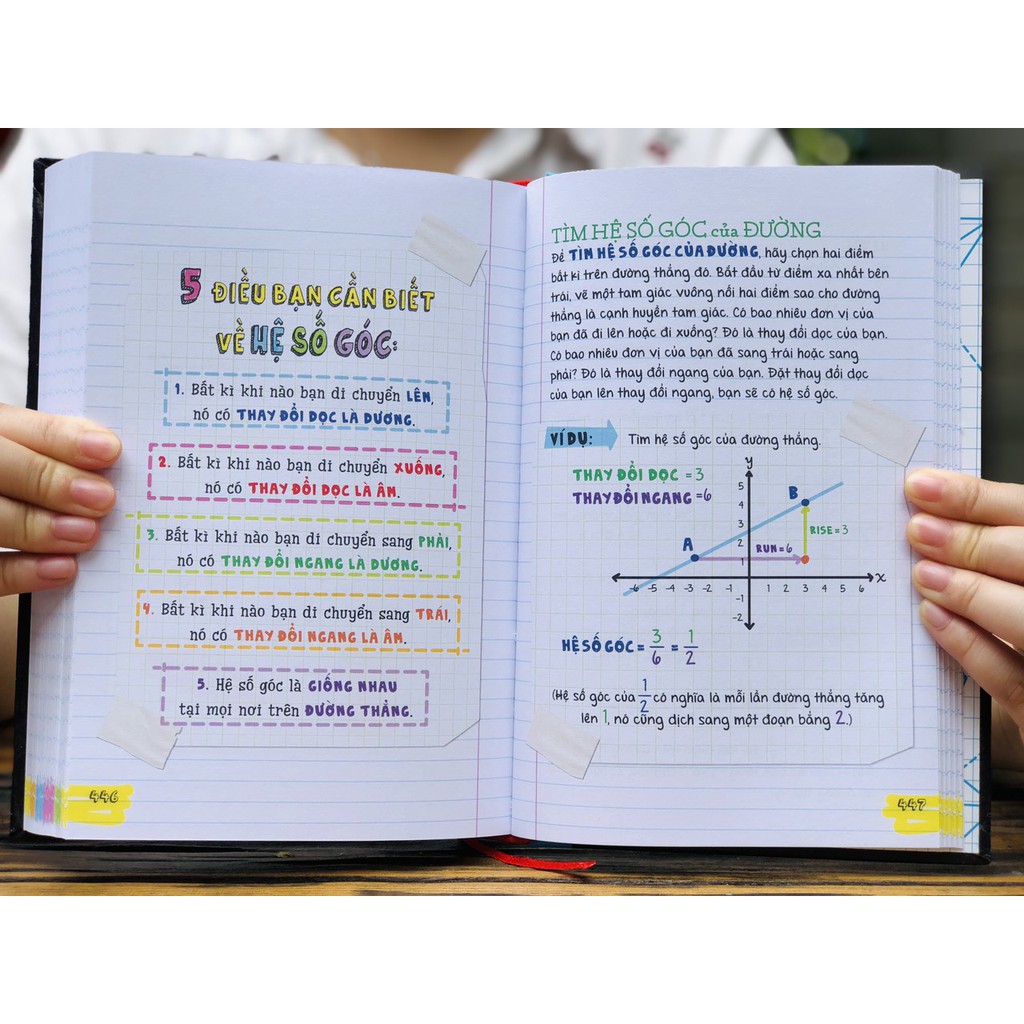 5 ĐIỀU BẠN CẦN BIẾT
VỀ HỆ SỐ GÓC:
1. Bất kì khi nào bạn di chuyển LÊN,
nó có THAY ĐỔI DỌC LÀ DƯƠNG.
2. Bất kì khi nào bạn di chuyển XUỐNG,
nó có THAY ĐỔI DỌC LÀ ÂM.
3. Bất kì khi nào bạn di chuyển sang PHẢI,
nó có THAY ĐỔI NGANG LÀ DƯƠNG.
4. Bất kì khi nào bạn di chuyển sang TRÁI,
nó có THAY ĐỔI NGANG LÀ ÂM.
5. Hệ số góc là GIỐNG NHAU
tại mọi nơi trên ĐƯỜNG THẲNG.
446
TÌM HỆ SỐ GÓC của ĐƯỜNG
Để TÌM HỆ SỐ GÓC CỦA ĐƯỜNG, hãy chọn hai điểm
bất kì trên đường thẳng đó. Bắt đầu từ điểm xa nhất bên
trái, vẽ một tam giác vuông nối hai điểm sao cho đường
thẳng là cạnh huyền tam giác. Có bao nhiêu đơn vị của
bạn đã đi lên hoặc đi xuống? Đó là thay đổi dọc của bạn.
Có bao nhiêu đơn vị của bạn đã sang trái hoặc sang
phải? Đó là thay đổi ngang của bạn. Đặt thay đổi dọc
của bạn lên thay đổi ngang, bạn sẽ có hệ số góc.
VÍ DỤ: Tìm hệ số góc của đường thẳng.
THAY ĐỔI DỌC = 3
THAY ĐỔI NGANG = 6
y
5
4
3
2
1
B
A
RISE = 3
RUN = 6
-6 -5 -4 -3 -2 -1 1 2 3 4 5 6 x
-1
-2
HỆ SỐ GÓC = 3/6 = 1/2
(Hệ số góc của 1/2 có nghĩa là mỗi lần đường thẳng tăng
lên 1, nó cũng dịch sang một đoạn bằng 2.)
447